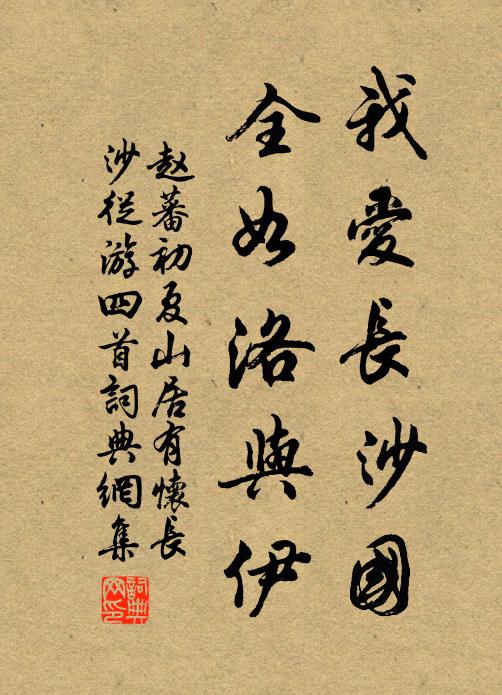 我愛長沙國
全如洛與伊
赵蕃初夏山居有懷長
沙從游四首詞典網集
詞典网印